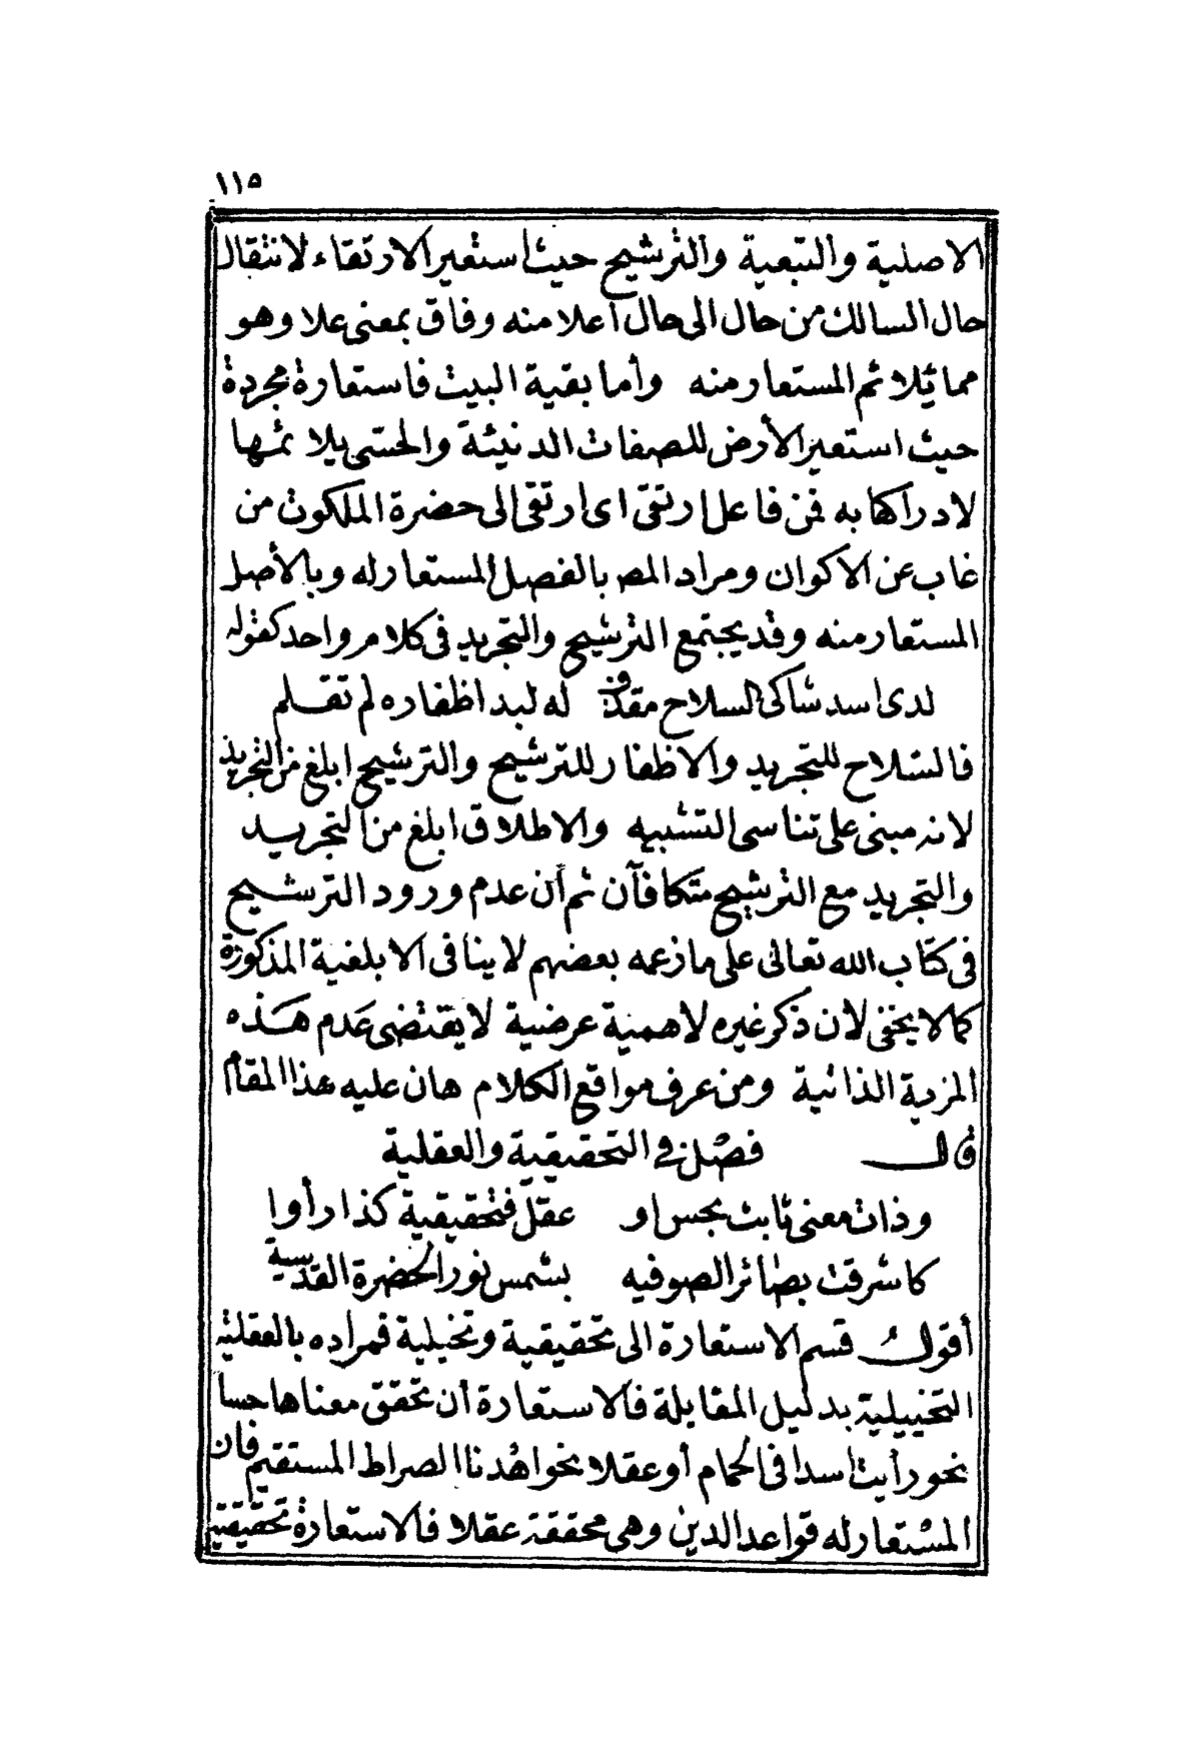 ١١٥
الاصلية والتبعية والترشيح حيث استعير الارتقاء لانتقال
حال السالك من حال الى حال أعلا منه وفاق بمعنى علا وهو
مما يلائم المستعار منه وأما بقية البيت فاستعارة مجردة
حيث استعير الأرض للصفات الدنيئة والحسى يلائمها
لادراكها به فمن فاعل ارتقى اى ارتقى الى حضرة الملكوت من
غاب عن الاكوان ومراد المص بالفصل المستعار له وبالأصل
المستعار منه وقد يجتمع الترشيح والتجريد فى كلام واحد كقوله
لدى اسد شاكى السلاح مقذف له لبد اظفاره لم تقلم
فالسلاح للتجريد والاظفار للترشيح والترشيح ابلغ من التجريد
لانه مبنى على تناسى التشبيه والاطلاق ابلغ من التجريد
والتجريد مع الترشيح متكافآن ثم أن عدم ورود الترشيح
فى كتاب الله تعالى على مازعمه بعضهم لا ينافى الابلغية المذكورة
كما لا يخفى لان ذكر غيره لاهمية عرضية لا يقتضى عدم هذه
المزية الذاتية ومن عرف مواقع الكلام هان عليه هذا المقام
قال فصل فى التحقيقية والعقلية
وذات معنى ثابت بحس او عقل فتحقيقية كذا رأوا
كاشرقت بصائر الصوفيه بشمس نور الحضرة القدسية
أقول قسم الاستعارة الى تحقيقية وتخيلية فمراده بالعقلية
التخييلية بدليل المقابلة فالاستعارة أن تحقق معناها حسا
نحو رأيت اسدا فى الحمام أو عقلا نحو اهدنا الصراط المستقيم فان
المستعار له قواعد الدين وهى محققة عقلا فالاستعارة تحقيقية